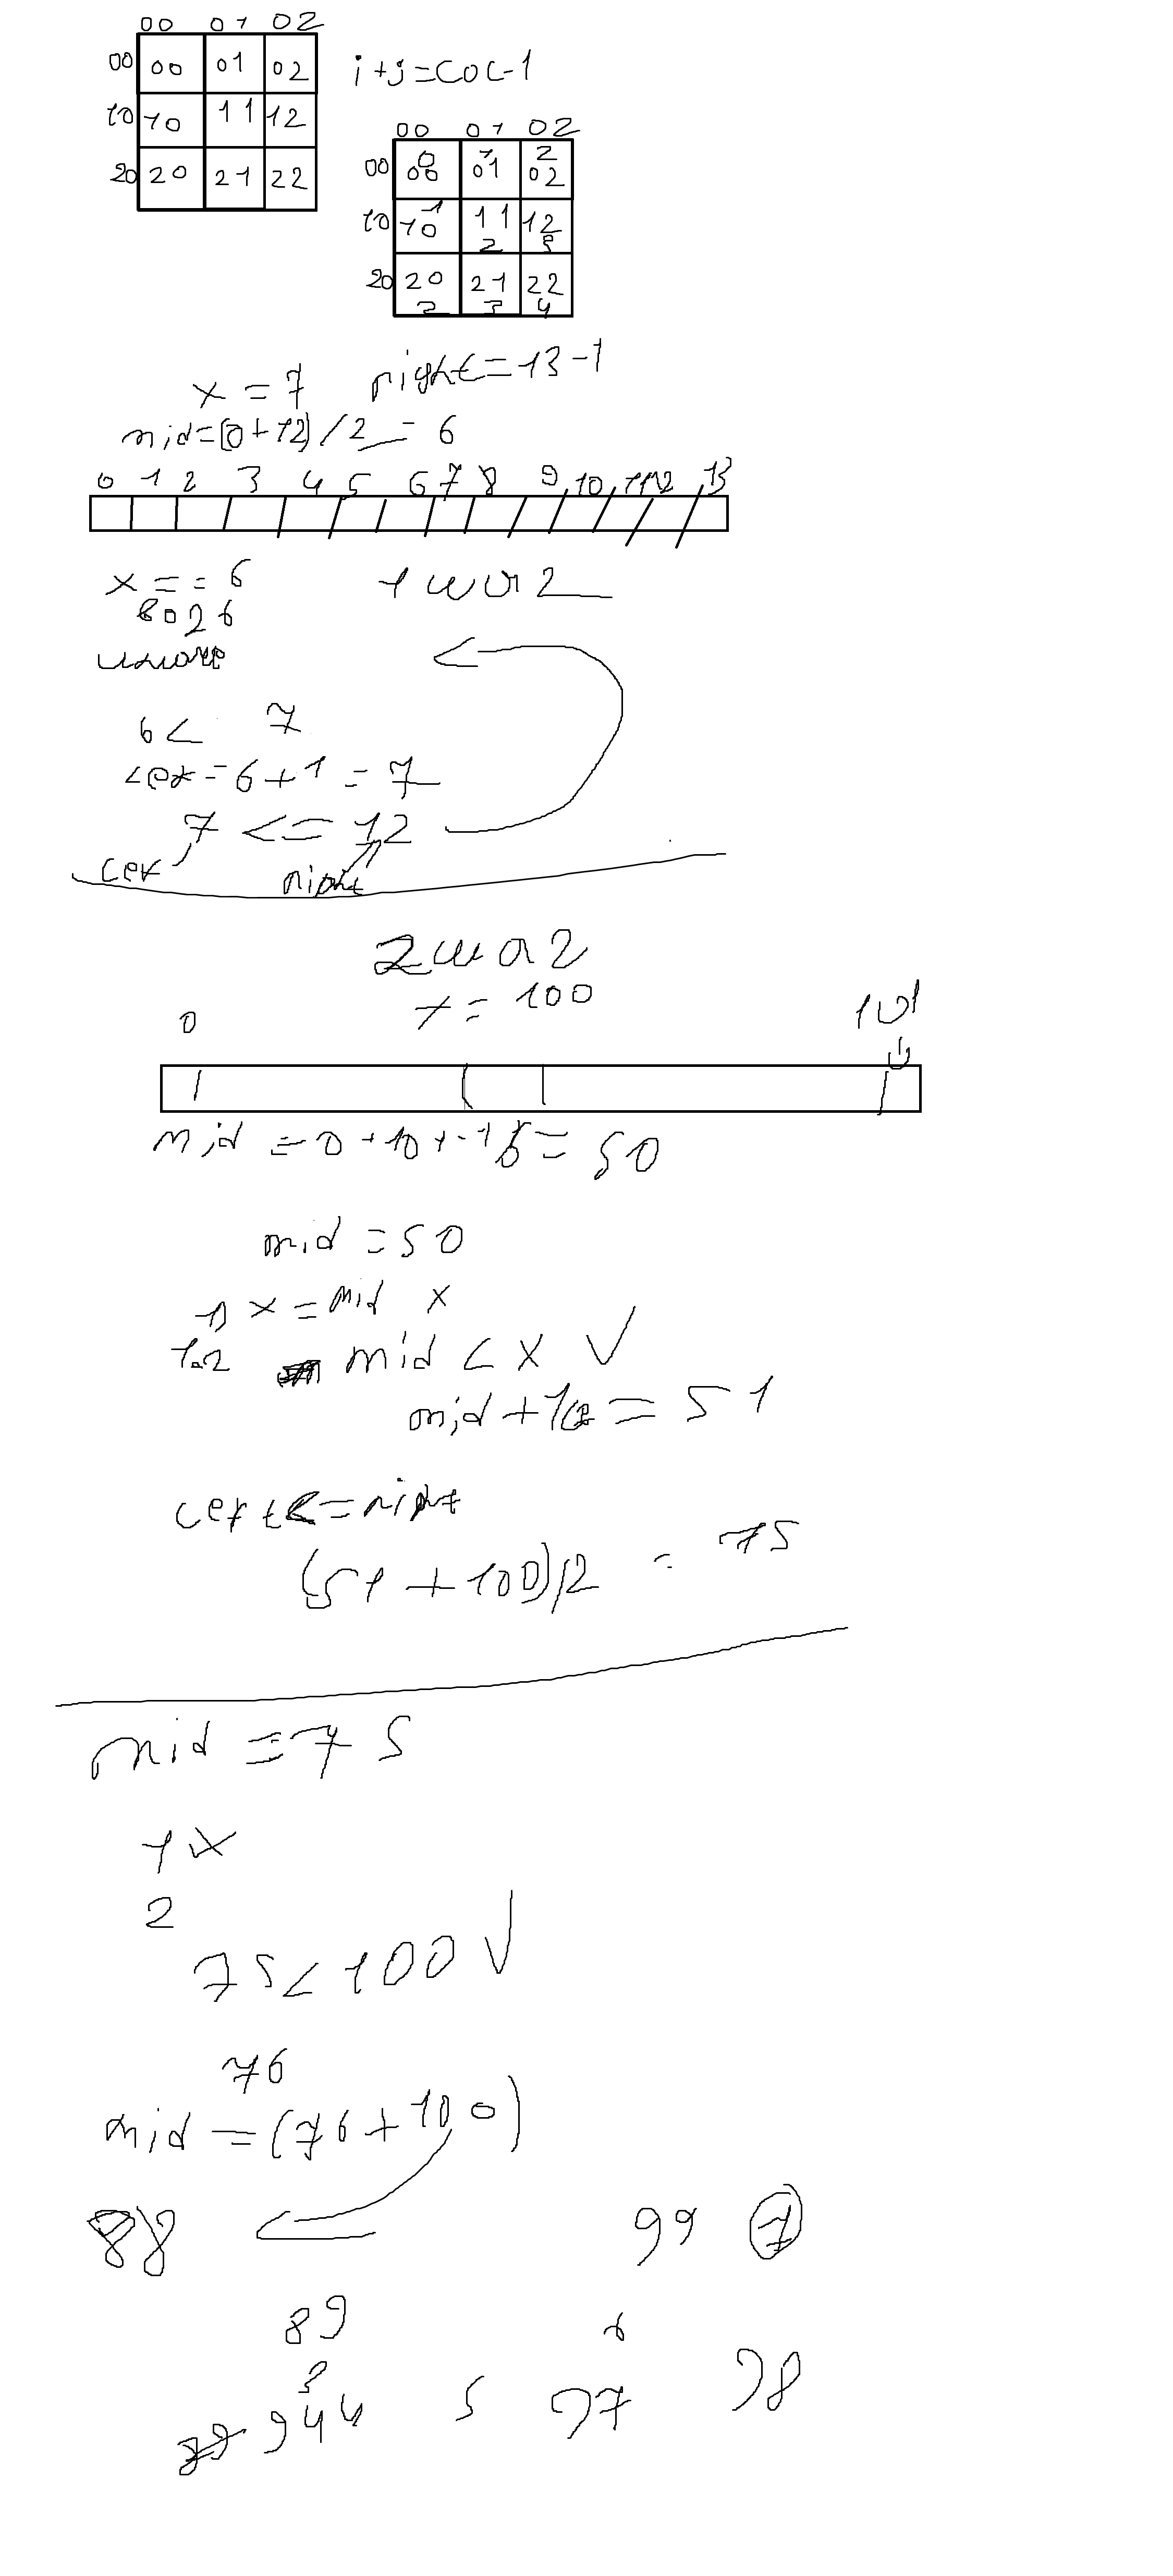 00 01 02
00 00 01 02
10 10 11 12
20 20 21 22
i+j=col-1
00 01 02
00 00 01 02
0 1 2
10 10 11 12
1 2 3
20 20 21 22
2 3 4
x=7 right=13-1
mid=(0+12)/2=6
0 1 2 3 4 5 6 7 8 9 10 11 12 13
x==6 1 шаг
6<7
left=6+1=7
7<=12
left right
2 шаг
x=100
0 101
mid=50
mid=50
1) x=mid x
mid<x ✓
=51
left<=right
(51+100)/2=75
mid=75
1 x
2
75<100 ✓
76
mid=(76+100)
88 99 7
89 6
3
94 4 5 97 98